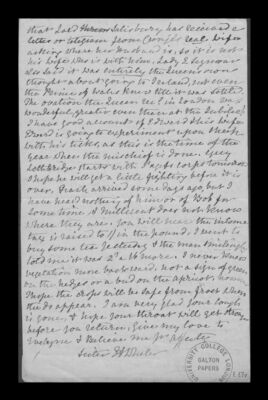 that Lord Salisbury has received a
letter or telegram from Cronje's wife
asking where her Husband is, so it is not
his wife who is with him. Lady
also said it was entirely the Queen's own
thought about going to Ireland, not even
the Prince of Wales knew till it was settled.
The ovation the Queen in London was
wonderful, greater even than at the Jubilee.
I have good accounts of Edward & his wife
Edward is going to experiment upon sheep
with his ticks, as this is the time of the
year when the mischief is done.
starts with corps tomorrow
I hope he will get a little fighting before it is
over. arrived some days ago but I
have heard nothing of him or Bob for
some time & Millicent does not know
where they are. You will hear the income
tax is raised to 1/ in the pound. I went to
buy some tea yesterday & the man
told me it was 2d a lb more. I never knew
vegetation more backward, not a sign of green
on the hedges or a bud on the apricots
I hope the crops will be safe from frost when
they do appear. I am very glad your cough
is gone, & hope your throat will get strong
before you return, Give my love to
Evelyne & believe me yr affecte
Sister
UNIVERSITY COLLEGE LONDON
GALTON
PAPERS